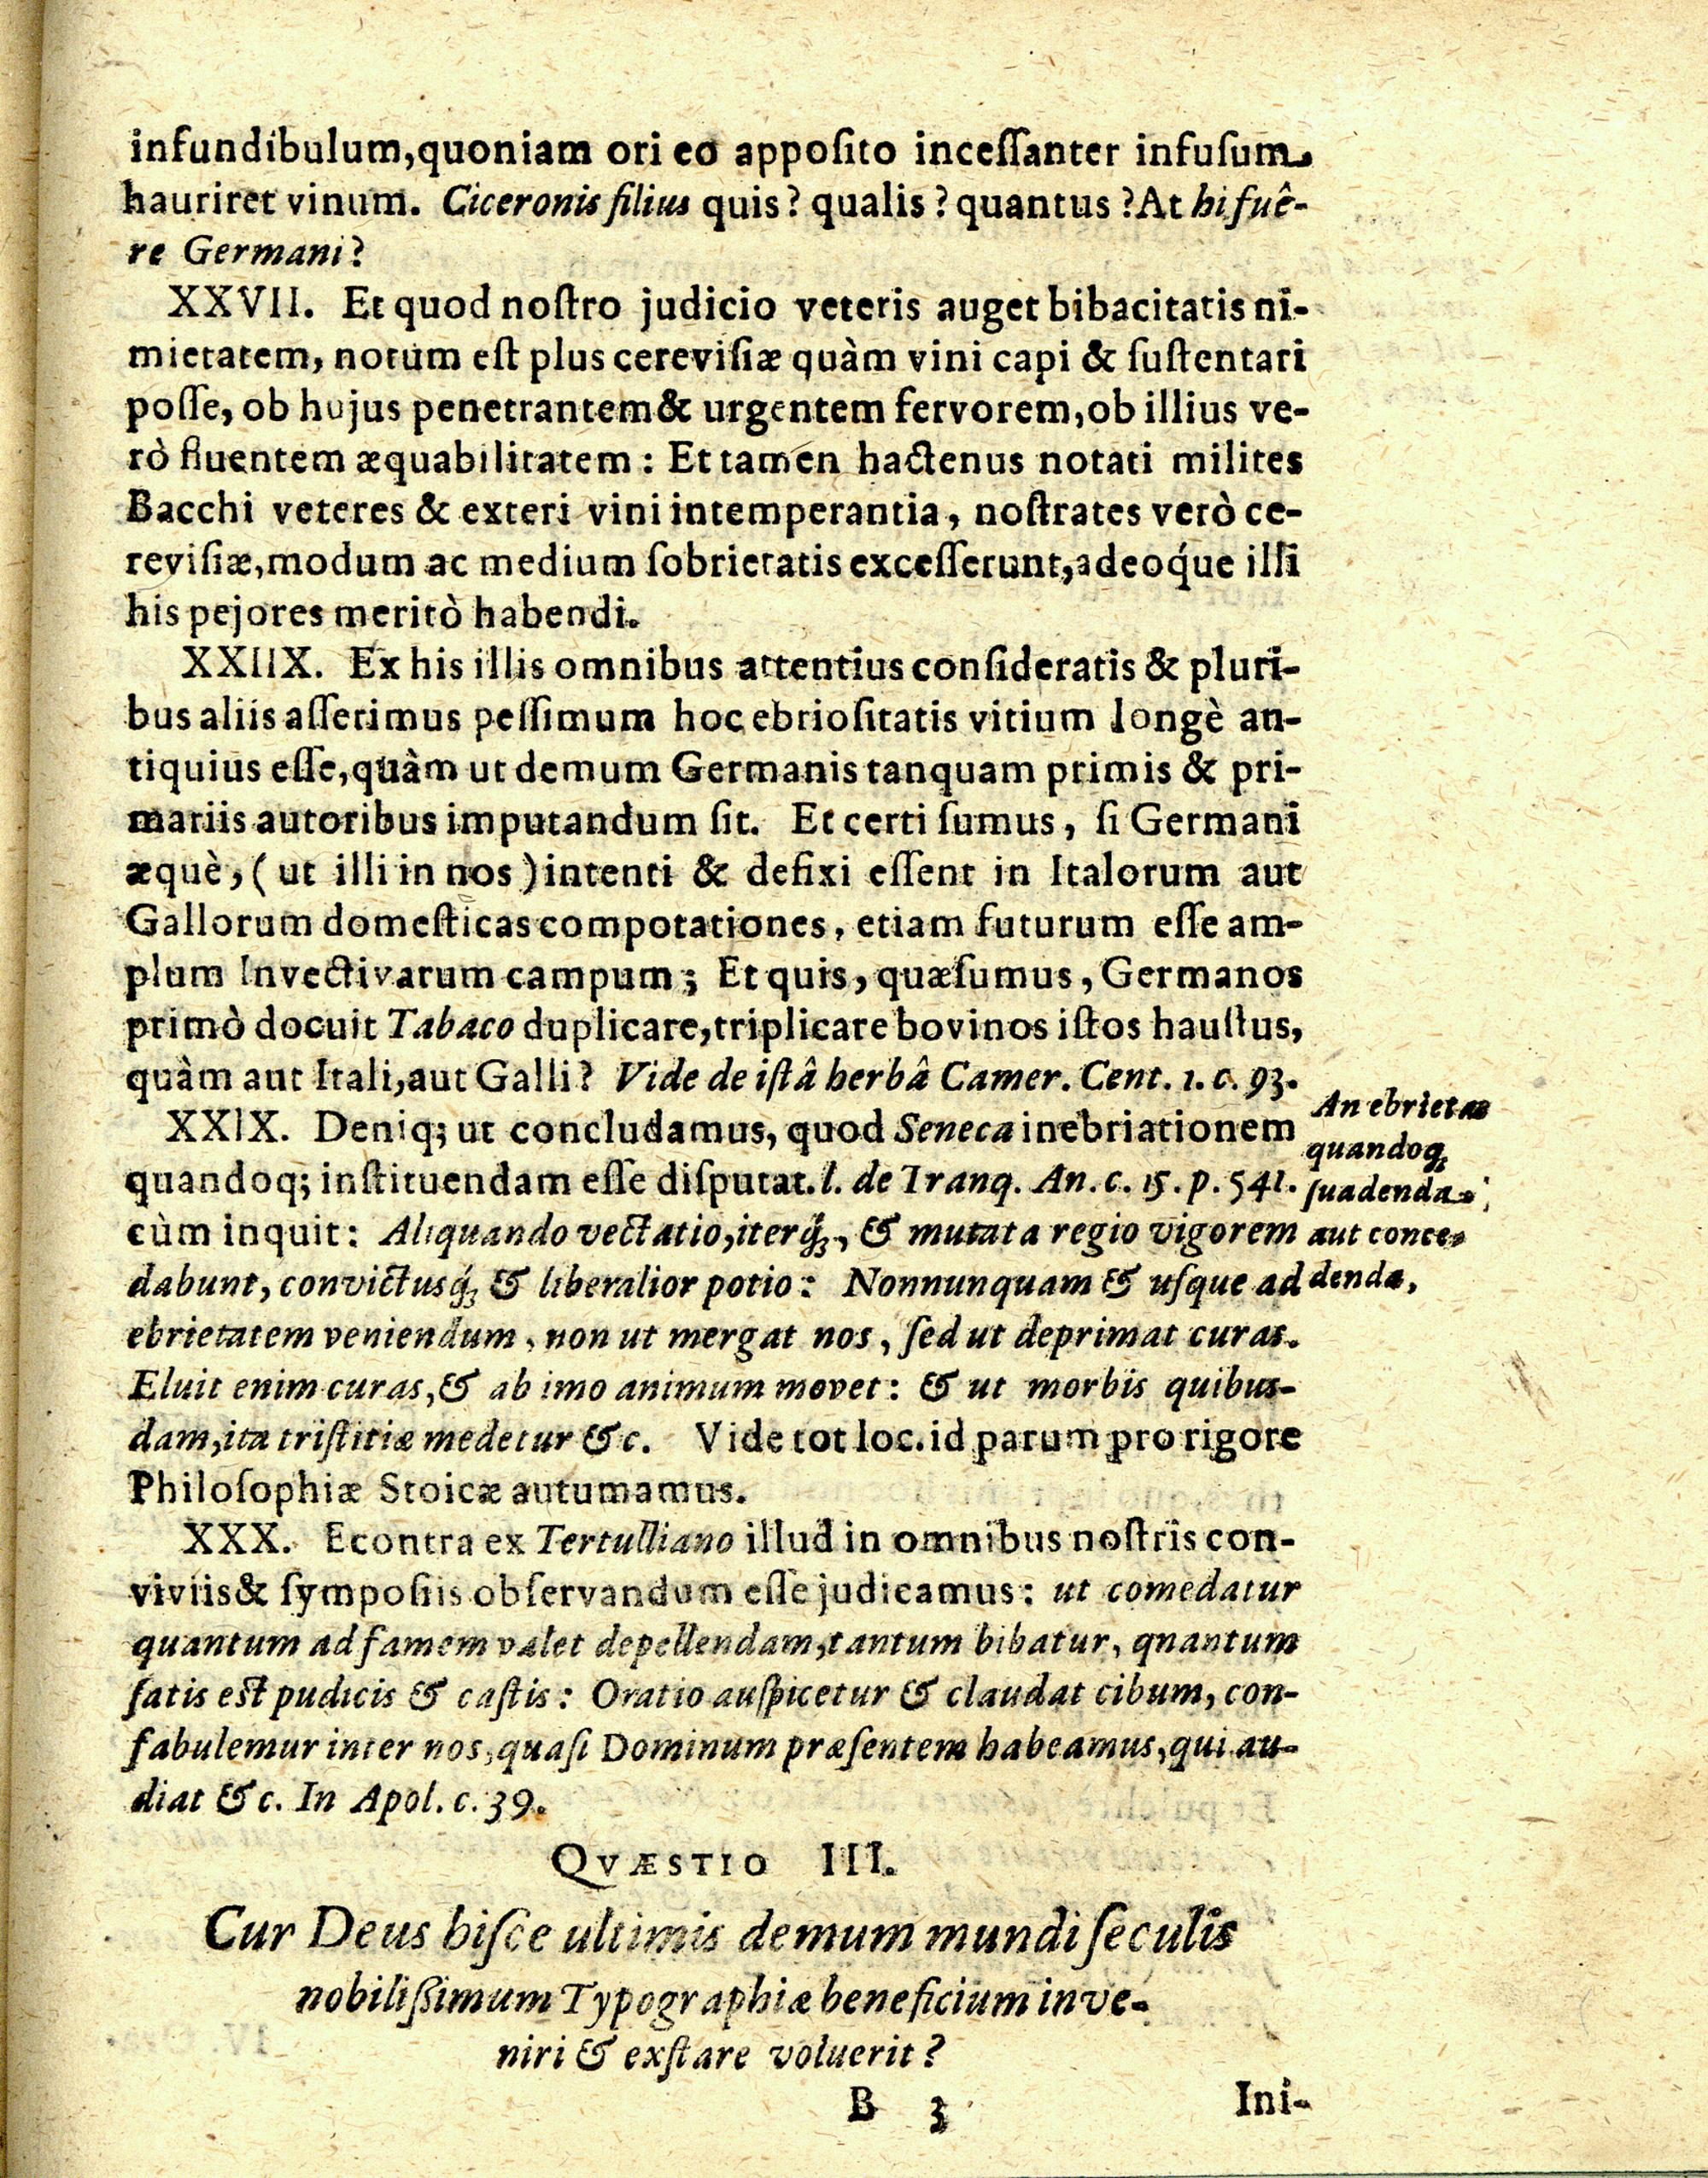 infundibulum,quoniam ori eo appoſito inceſſanter infuſum
hauriret vinum. Ciceronis filius quis? qualis? quantus? At hi fuê-
re Germani?
XXVII. Et quod noſtro judicio veteris auget bibacitatis ni-
mietatem, notum eſt plus cereviſiæ quàm vini capi & ſuſtentari
poſſe, ob hujus penetrantem & urgentem fervorem, ob illius ve-
rò fluentem æquabilitatem: Et tamen hactenus notati milites
Bacchi veteres & exteri vini intemperantia, noſtrates verò ce-
reviſiæ, modum ac medium ſobrietatis exceſſerunt, adeoq́ue illi
his pejores meritò habendi.
XXIIX. Ex his illis omnibus attentius conſideratis & pluri-
bus aliis aſſerimus peſſimum hoc ebrioſitatis vitium longè an-
tiquius eſſe, quàm ut demum Germanis tanquam primis & pri-
mariis autoribus imputandum ſit. Et certi ſumus, ſi Germani
æquè, (ut illi in nos) intenti & defixi eſſent in Italorum aut
Gallorum domeſticas compotationes, etiam futurum eſſe am-
plum Invectivarum campum; Et quis, quæſumus, Germanos
primò docuit Tabaco duplicare, triplicare bovinos iſtos hauſtus,
quàm aut Itali, aut Galli? Vide de iſtâ herbâ Camer. Cent. 1. c. 93.
XXIX. Deniq; ut concludamus, quod Seneca inebriationem
quandoq; inſtituendam eſſe diſputat. l. de Tranq. An. c. 15. p. 541.
cùm inquit: Aliquando vectatio, iterq́;, & mutata regio vigorem
dabunt, convictusq́; & liberalior potio: Nonnunquam & uſque ad
ebrietatem veniendum, non ut mergat nos, ſed ut deprimat curas.
Eluit enim curas, & ab imo animum movet: & ut morbis quibus-
dam, ita triſtitiæ medetur &c. Vide tot loc. id parum pro rigore
Philoſophiæ Stoicæ autumamus.
An ebrietas
quandoq;
ſuadenda
aut conce-
denda,
XXX. Econtra ex Tertulliano illud in omnibus noſtris con-
viviis & ſympoſiis obſervandum eſſe judicamus: ut comedatur
quantum ad famem valet depellendam, tantum bibatur, qnantum
ſatis eſt pudicis & caſtis: Oratio auſpicetur & claudat cibum, con-
fabulemur inter nos, quaſi Dominum præſentem habeamus, qui au-
diat &c. In Apol. c. 39.
QVÆSTIO III.
Cur Deus hiſce ultimis demum mundi ſeculis
nobilißimum Typographiæ beneficium inve-
niri & exſtare voluerit?
B 3
Ini-